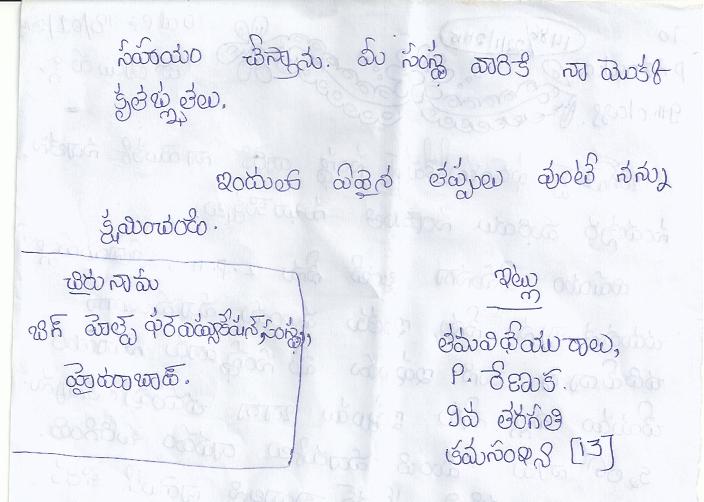 సహాయం చేస్తాను. మీ సంస్థ వారికే నా మొకళి
కృతజ్ఞతలు.
ఇందులో ఏవైన తప్పులు వుంటే నన్ను
క్షమించండి.
చిరునామ
బిగ్ హెల్ప్ ఫర్ ఎడ్యుకేషన్, సంస్థ,
హైదరాబాద్.
ఇట్లు
తమవిధేయురాలు,
P. రేణుక.
9వ తరగతి
క్రమసంఖ్య [13]